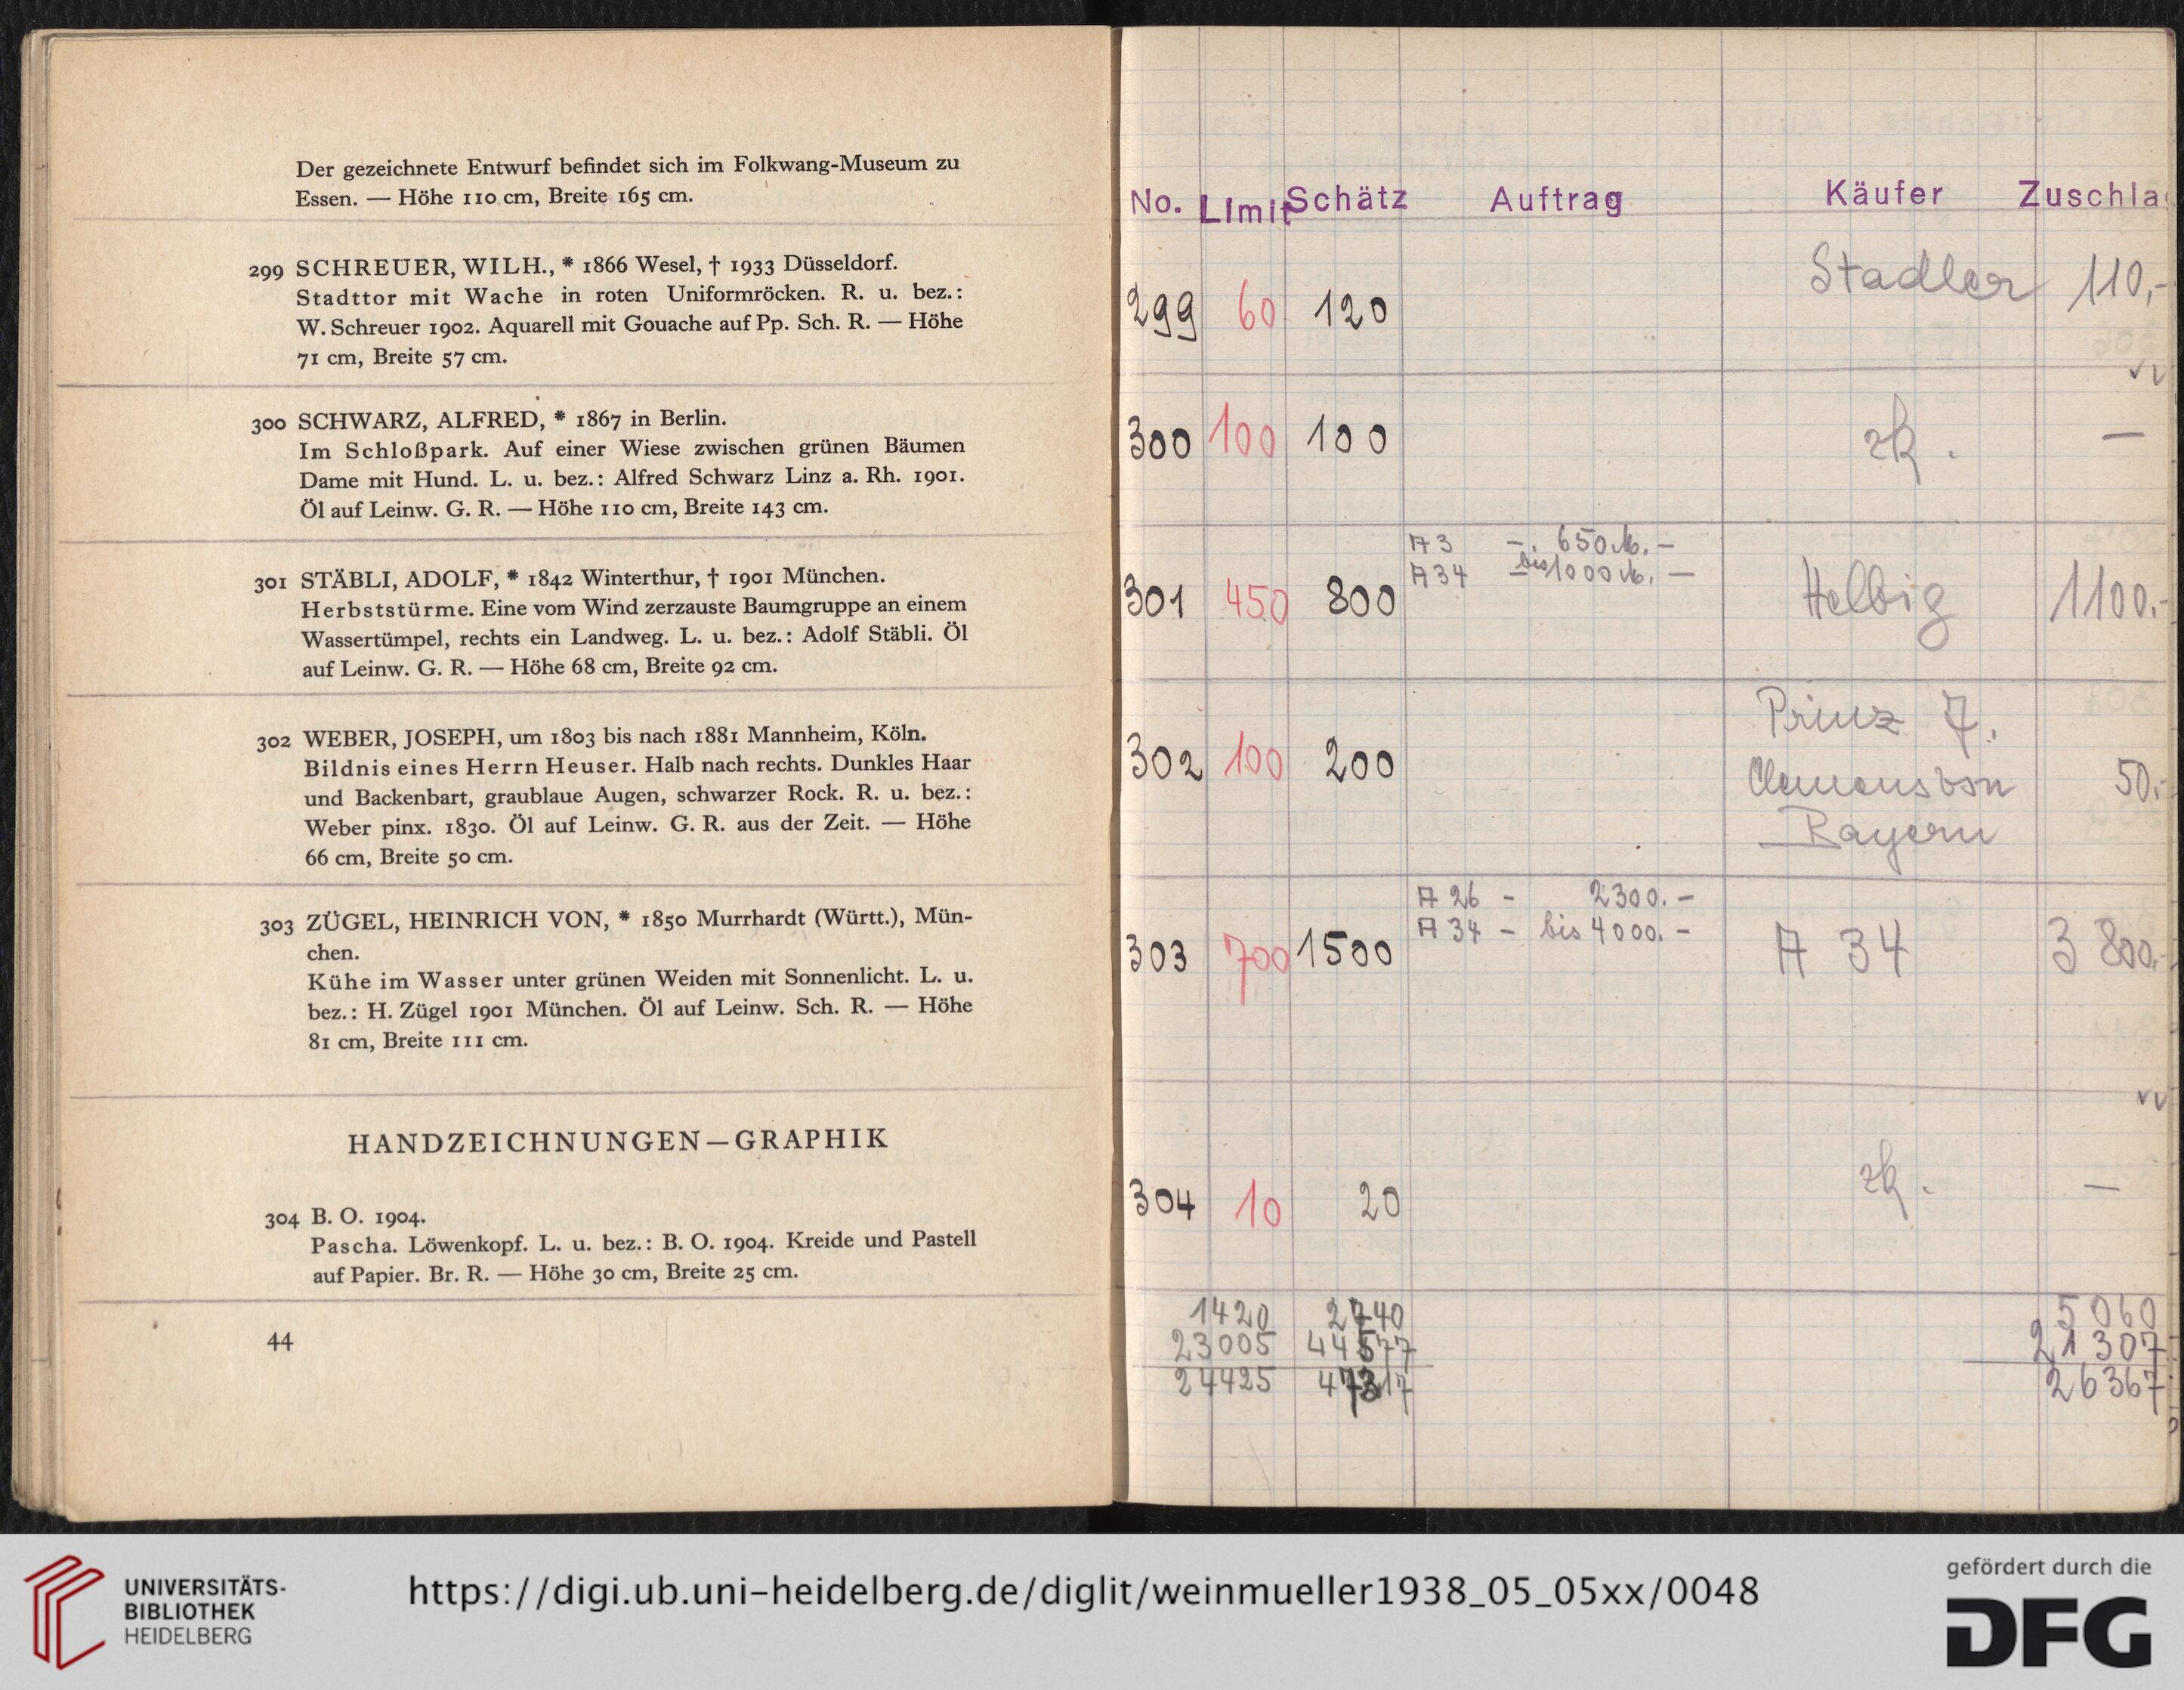 Der gezeichnete Entwurf befindet sich im Folkwang-Museum zu
Essen. — Höhe 110 cm, Breite 165 cm.
299 SCHREUER, WILH., * 1866 Wesel, † 1933 Düsseldorf.
Stadttor mit Wache in roten Uniformröcken. R. u. bez.:
W. Schreuer 1902. Aquarell mit Gouache auf Pp. Sch. R. — Höhe
71 cm, Breite 57 cm.
300 SCHWARZ, ALFRED, * 1867 in Berlin.
Im Schloßpark. Auf einer Wiese zwischen grünen Bäumen
Dame mit Hund. L. u. bez.: Alfred Schwarz Linz a. Rh. 1901.
Öl auf Leinw. G. R. — Höhe 110 cm, Breite 143 cm.
301 STÄBLI, ADOLF, * 1842 Winterthur, † 1901 München.
Herbststürme. Eine vom Wind zerzauste Baumgruppe an einem
Wassertümpel, rechts ein Landweg. L. u. bez.: Adolf Stäbli. Öl
auf Leinw. G. R. — Höhe 68 cm, Breite 92 cm.
302 WEBER, JOSEPH, um 1803 bis nach 1881 Mannheim, Köln.
Bildnis eines Herrn Heuser. Halb nach rechts. Dunkles Haar
und Backenbart, graublaue Augen, schwarzer Rock. R. u. bez.:
Weber pinx. 1830. Öl auf Leinw. G. R. aus der Zeit. — Höhe
66 cm, Breite 50 cm.
303 ZÜGEL, HEINRICH VON, * 1850 Murrhardt (Württ.), Mün-
chen.
Kühe im Wasser unter grünen Weiden mit Sonnenlicht. L. u.
bez.: H. Zügel 1901 München. Öl auf Leinw. Sch. R. — Höhe
81 cm, Breite 111 cm.
HANDZEICHNUNGEN — GRAPHIK
304 B. O. 1904.
Pascha. Löwenkopf. L. u. bez.: B. O. 1904. Kreide und Pastell
auf Papier. Br. R. — Höhe 30 cm, Breite 25 cm.
44
No. Limit Schätz Auftrag Käufer Zuschla
299 60 120 Stadler 110,-
300 100 100 zk. —
A 3 - 650 M. -
A 34 - bis 1000 M. -
301 450 800 Helbig 1100.-
Prinz
302 100 200 Clemens von 50.-
Bayern
A 26 - 2300. -
A 34 - bis 4000. -
303 700 1500 A 34 3 800.-
304 10 20 zk. —
1420 2740 5060
23005 44577 21307
24425 47317 26367
UNIVERSITÄTS-
BIBLIOTHEK
HEIDELBERG
https://digi.ub.uni-heidelberg.de/diglit/weinmueller1938_05_05xx/0048
gefördert durch die
DFG